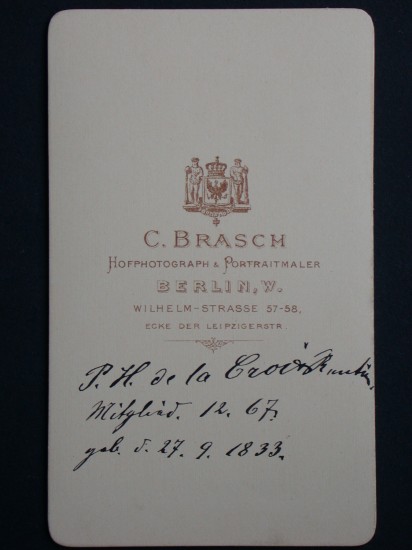 C. BRASCH
HOFPHOTOGRAPH & PORTRAITMALER
BERLIN, W.
WILHELM-STRASSE 57-58,
ECKE DER LEIPZIGERSTR.
P. H. de la Croix
Mitglied. 12. 67.
geb. d. 27. 9. 1833.